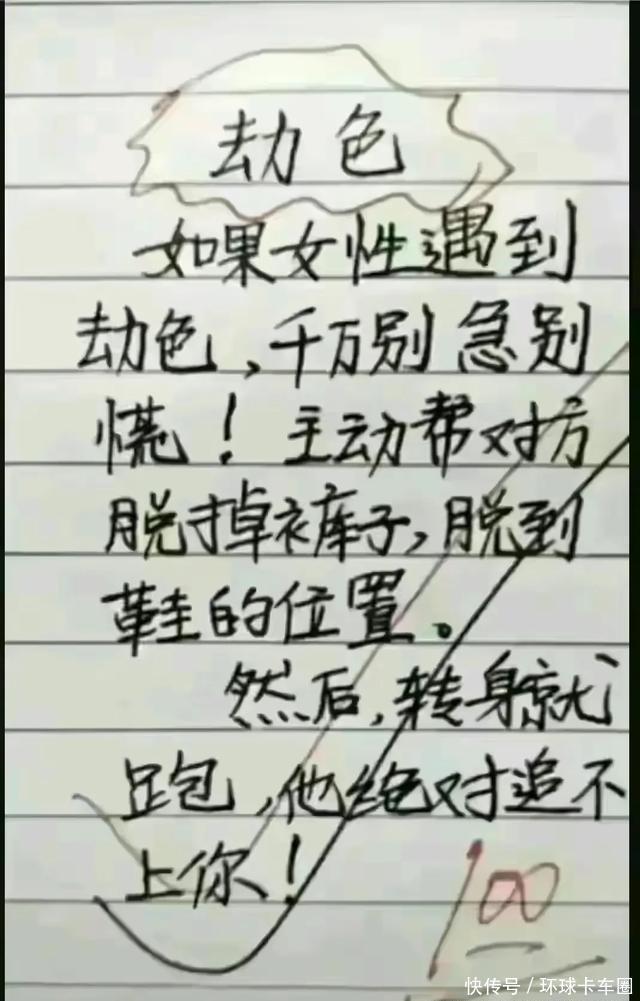 劫色
如果女性遇到
劫色，千万别急别
慌！主动帮对方
脱掉裤子，脱到
鞋的位置。
然后，转身就
跑，他绝对追不
上你！
100
快传号/环球卡车圈